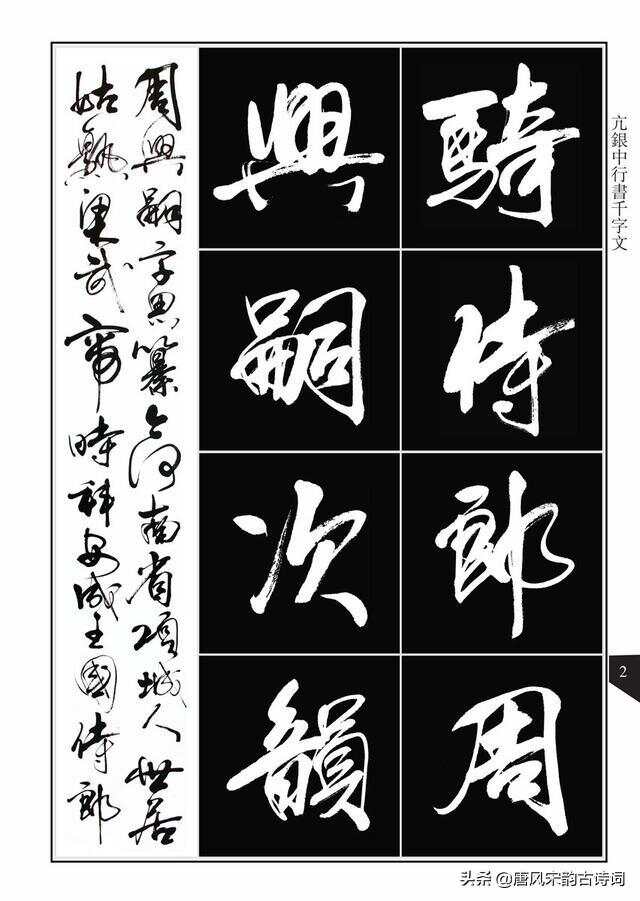 亢銀中行書千字文
騎侍郎周
興嗣次韻
周興嗣字思纂今河南省項城人世居
姑熟梁武帝時拜安成王國侍郎
2
头条 @唐风宋韵古诗词